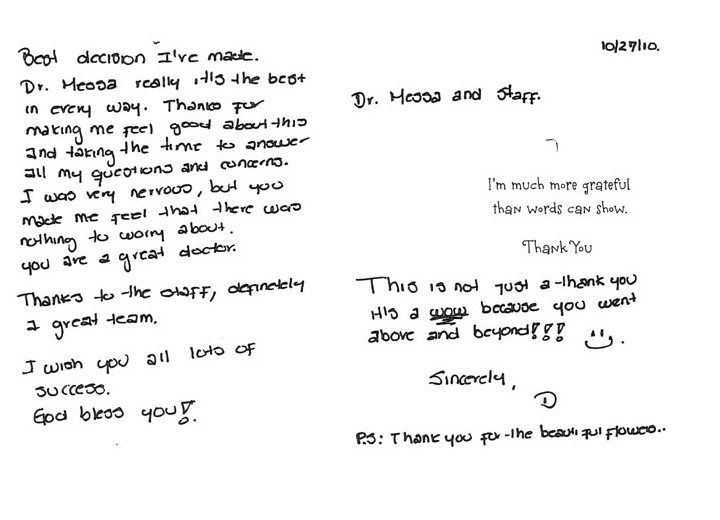 Best decision I've made.
Dr. Messa really is the best
in every way. Thanks for
making me feel good about this
and taking the time to answer
all my questions and concerns.
I was very nervous, but you
made me feel that there was
nothing to worry about.
you are a great doctor.
Thanks to the staff, definetely
a great team.
I wish you all lots of
success.
God bless you!
10/27/10.
Dr. Messa and Staff.
I'm much more grateful
than words can show.
Thank You
This is not just a thank you
It's a wow because you went
above and beyond!!! :).
Sincerely,
D
P.S: Thank you for the beautiful flowers..